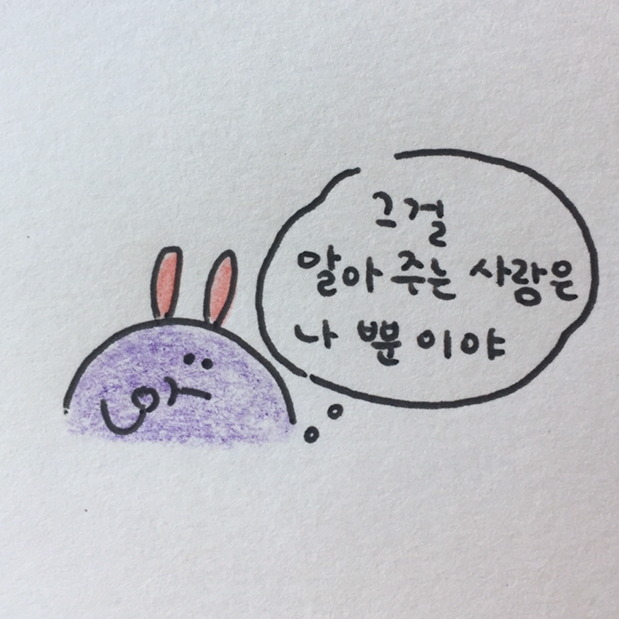 그걸
알아 주는 사람은
나 뿐이야